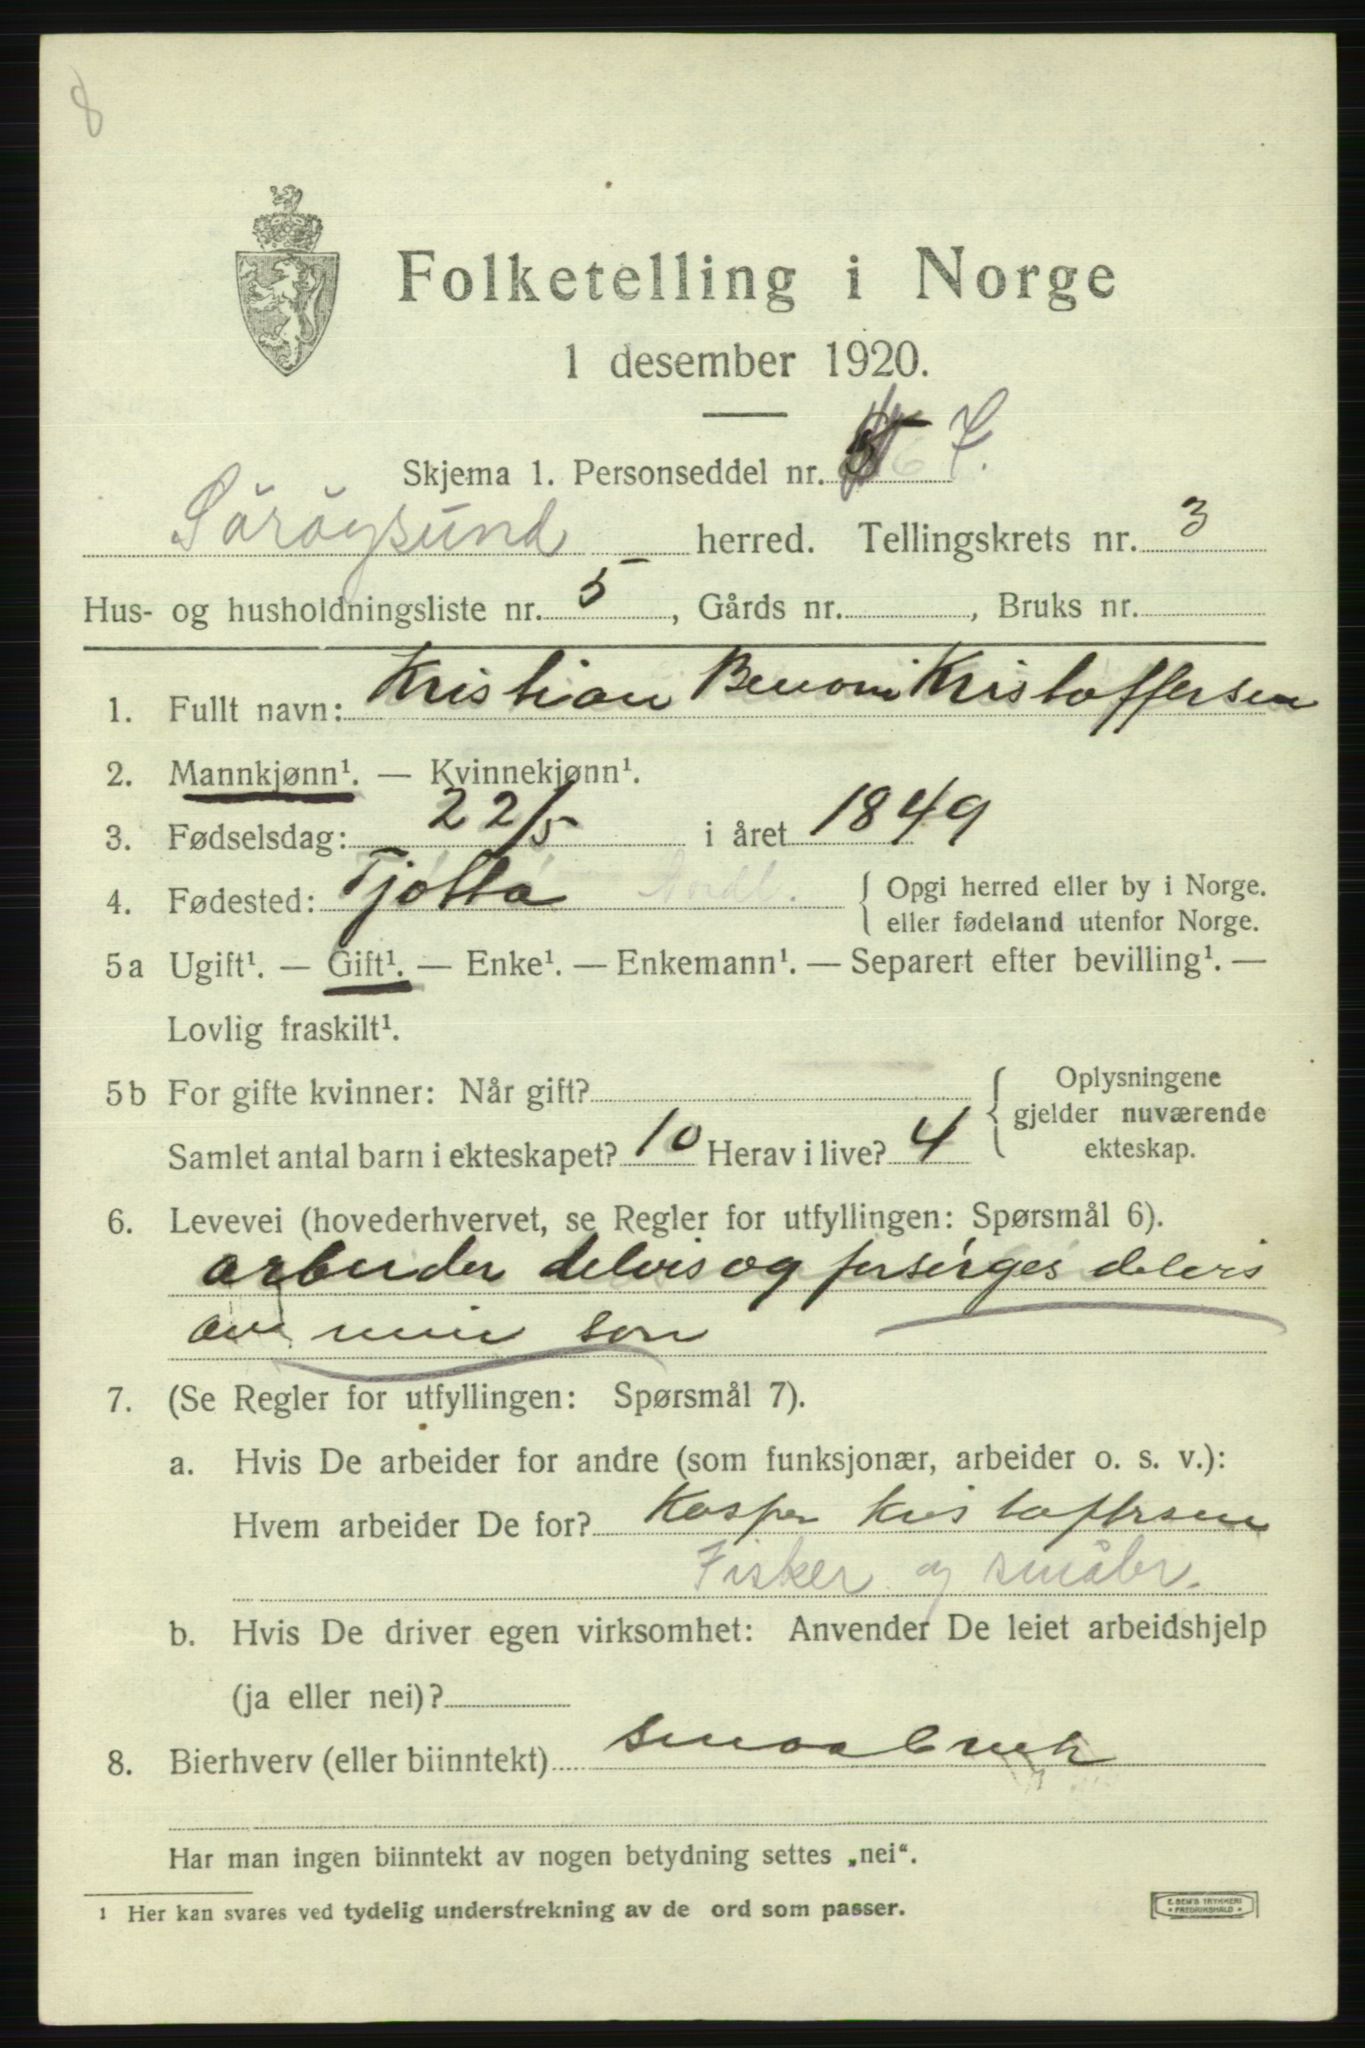 8
Folketelling i Norge
1 desember 1920.
Skjema 1. Personseddel nr. 7.
Söröysund herred. Tellingskrets nr. 3
Hus- og husholdningsliste nr. 5, Gårds nr. , Bruks nr.
1. Fullt navn: Kristian Benoni Kristoffersen
2. Mannkjønn¹. — Kvinnekjønn¹.
3. Fødselsdag: 22/5 i året 1849
4. Fødested: Tjøtta Nordl. { Opgi herred eller by i Norge.
eller fødeland utenfor Norge.
5a Ugift¹. — Gift¹. — Enke¹. — Enkemann¹. — Separert efter bevilling¹. —
Lovlig fraskilt¹.
5b For gifte kvinner: Når gift? { Oplysningene
gjelder nuværende
Samlet antal barn i ekteskapet? 10 Herav i live? 4 ekteskap.
6. Levevei (hovederhvervet, se Regler for utfyllingen: Spørsmål 6).
arbeider delvis og forsørges delvis
av min søn
7. (Se Regler for utfyllingen: Spørsmål 7).
a. Hvis De arbeider for andre (som funksjonær, arbeider o. s. v.):
Hvem arbeider De for? Kasper Kristoffersen
Fisker og småbr.
b. Hvis De driver egen virksomhet: Anvender De leiet arbeidshjelp
(ja eller nei)?
8. Bierhverv (eller biinntekt) smaabruk
Har man ingen biinntekt av nogen betydning settes „nei“.
¹ Her kan svares ved tydelig understrekning av de ord som passer.
E. SEM'S TRYKKERI
FREDRIKSHALD